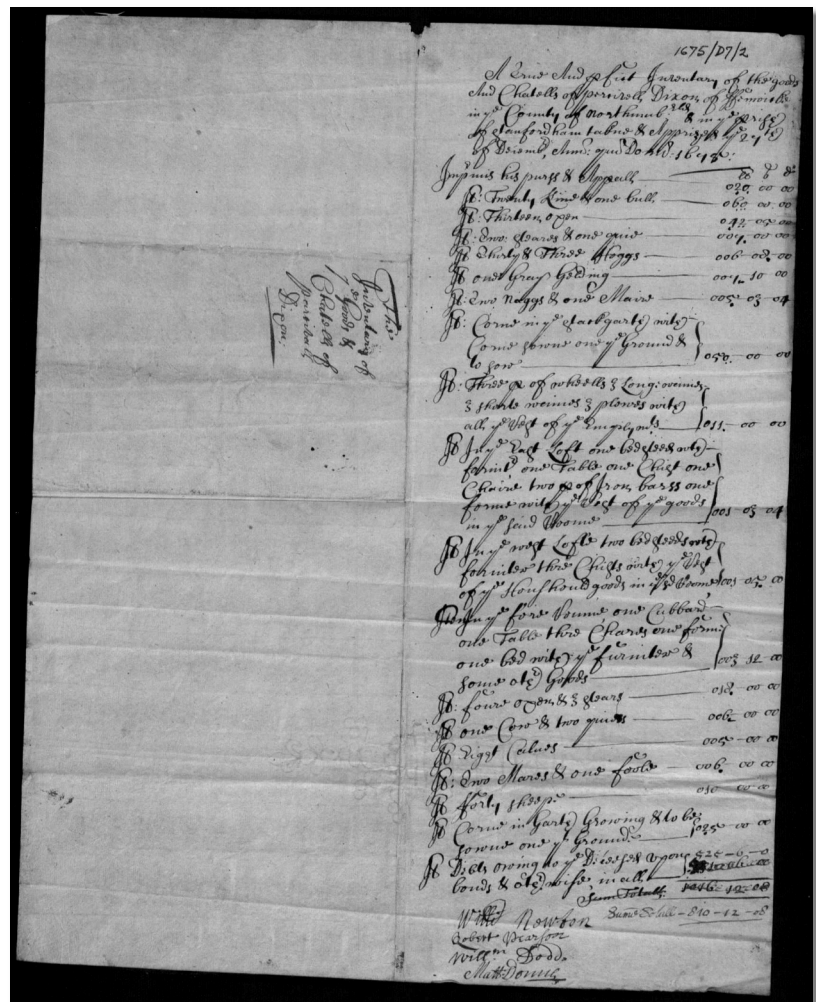 1675/D7/2
A True And pfect Inventary of the goods
And Chatells of Dixon of
in ye County of Northumb: & in ye
of Stanfordham takne & Apprized ye 27th
of Decemb,
Impmis his purss & Appell 020 00 00
It: Twenty Kine & one bull 060 00 00
It: Thirteen oxen 042
It: Two steares & one quie 007 00 00
It Thirty & Three Hoggs 006 00
It one Gray Gelding 10 00
It: Two Naggs & one Maire 005 03 04
It: Corne in ye stackgarth with
Corne sowne one ye Ground &
to sow 050 00 00
It: Three p of wheells 3 Long: waines
3 shorte waines 3 plowes with
all ye Rest of ye 011 00 00
It In ye East Loft one bedsteed with
furnitr one Table one Chist one
Chaire two p of Iron barss one
forme with ye Rest of ye goods
in ye said Roome 001 03 04
It In ye west Lofte two bedsteeds with
furniter thre Chists with ye Rest
of ye Houshould goods in ye sd Roome
Item in ye fore Roume one Cubbard
one Table thre Chares one forme
one bed with ye furniter &
some othr Goods 003 12 00
It: foure oxen & 3 stears 018 00 00
It one Cow & two quies 006 00 00
It Eight Calues 005 00 00
It: Two Mares & one foole 006 00 00
It forty sheepe 010 00 00
It Corne in Garth Growing & to be
sowne one ye Ground 025 00 00
It Debts owing to ye Diceased upon
bonds & othrwise in all 525-0-0
Sum Totall
Sume Totall - 810-12-08
Willm Newton
Robert Pearson
Willm Dodd
Matt: Donne
The
Inventary of
ye Goods &
Chatells of
Percivall
Dixon: